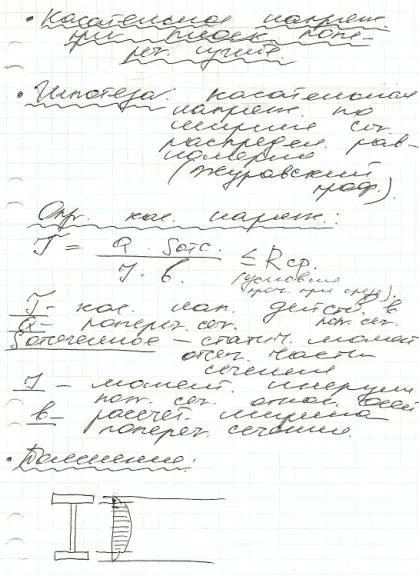 • Касательное напряж.
при плоск. попе-
реч. изгибе.
• Гипотеза: касательная
напряж. по
ширине сеч.
распредел. рав-
номерно
(Журавский
граф.).
Опр. кас. напряж.:
T = Q · Sотс. / J · b. ≤ Rср
(условие
проч. при срезе).
T - кас. нап. действ. в
Q - попереч. сеч. поп. сеч.
Sотсеченное - статич. момент
отсеч. части
сечения
J - момент инерции
поп. сеч. относ. осей
b - рассчет. ширина
попереч. сечения.
•